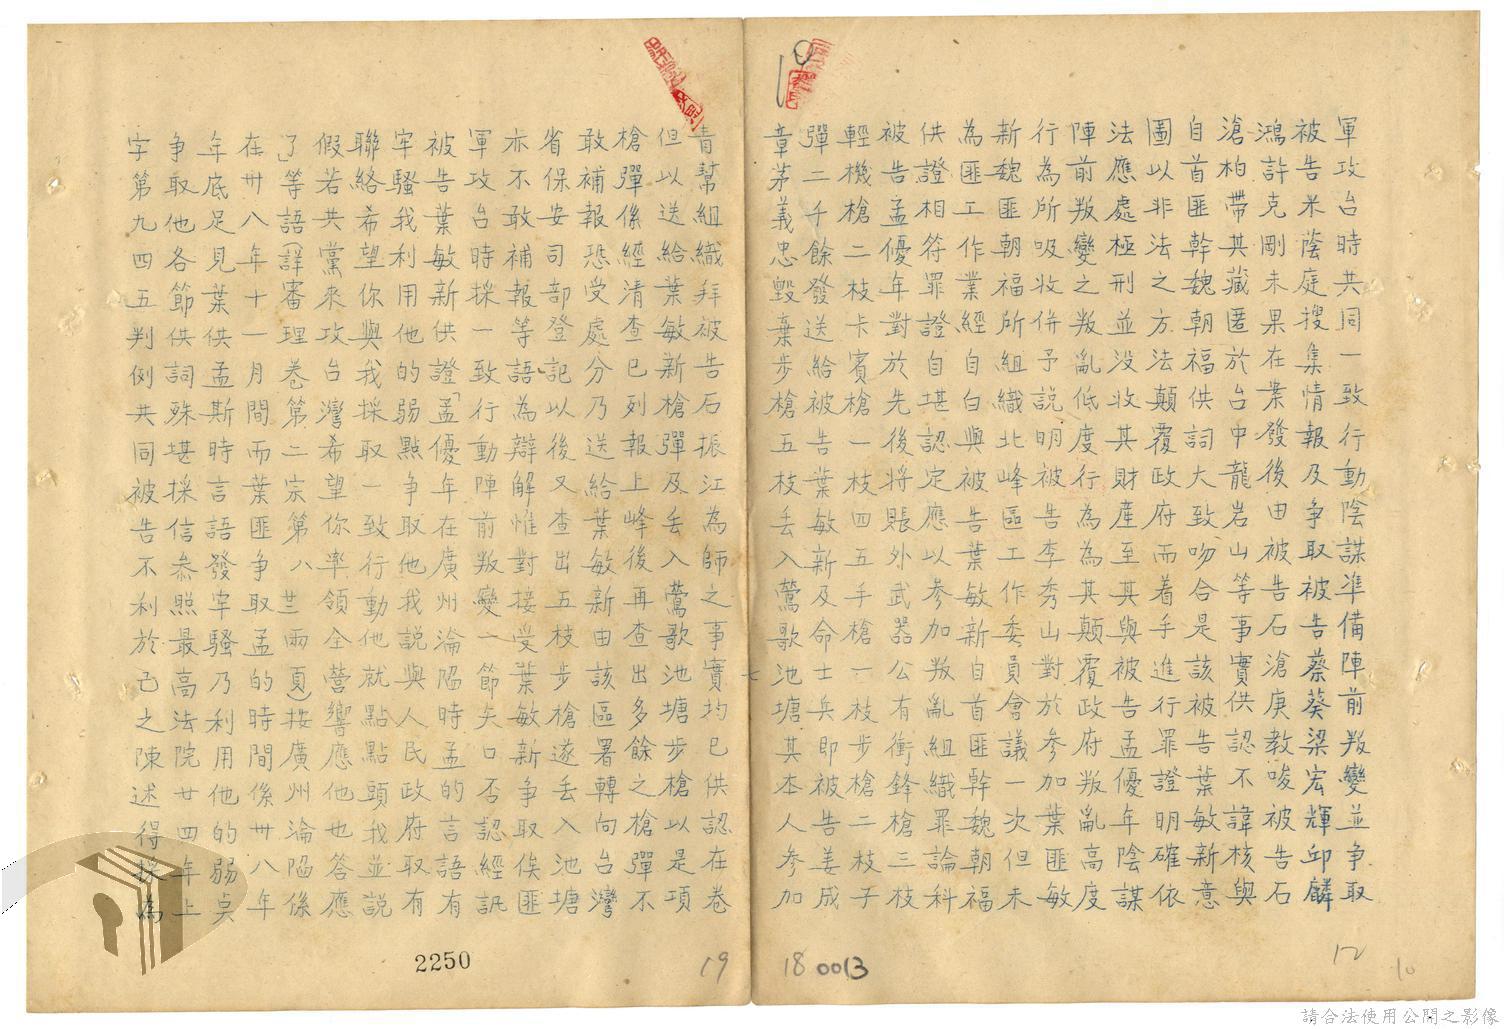 軍攻台時共同一致行動陰謀準備陣前叛變並爭取
被告米蔭庭搜集情報及爭取被告蔡葵梁宏輝邱麟
鴻許克剛未果在案發後由被告石滄庚教唆被告石
滄柏帶其藏匿於台中龍岩山等事實供認不諱核與
自首匪幹魏朝福供詞大致吻合是該被告葉敏新意
圖以非法之方法顛覆政府而着手進行罪證明確依
法應處極刑並没收其財産至其與被告孟優年陰謀
陣前叛變之叛亂低度行為為其顛覆政府叛亂高度
行為所吸收併予説明被告李秀山對於參加葉匪敏
新魏匪朝福所組織北峰區工作委員會議一次但未
為匪工作業經自白與被告葉敏新自首匪幹魏朝福
供證相符罪證自堪認定應以參加叛亂組織罪論科
被告孟優年對於先後將賬外武器公有衝鋒槍三枝
輕機槍二枝卡賓槍一枝四五手槍一枝步槍二枝子
彈二千餘發送給被告葉敏新及命士兵即被告姜成
章茅義忠毀棄步槍五枝丢入鶯歌池塘其本人參加
七
青幫組織拜被告石振江為師之事實均已供認在卷
但以送給葉敏新槍彈及丢入鶯歌池塘步槍以是項
槍彈係經清查已列報上峰後再查出多餘之槍彈不
敢補報恐受處分乃送給葉敏新由該區署轉向台灣
省保安司部登記以後又查出五枝步槍遂丢入池塘
亦不敢補報等語為辯解惟對接受葉敏新爭取俟匪
軍攻台時採一致行動陣前叛變一節矢口否認經訊
被告葉敏新供證「孟優年在廣州淪陷時孟的言語有
牢騷我利用他的弱點爭取他我説與人民政府取有
聯絡希望你與我採取一致行動他就點點頭我並説
假若共黨來攻台灣希望你率領全營響應他也答應
了」等語(詳審理卷第二宗第八十二兩頁)按廣州淪陷係
在卅八年十一月間而葉匪爭取孟的時間係卅八年
年底足見葉供孟斯時言語發牢騷乃利用他的弱點
爭取他各節供詞殊堪採信参照最高法院廿四年上
字第九四五判例共同被告不利於己之陳述得採為
2250
19
18
0013
12
10
請合法使用公開之影像